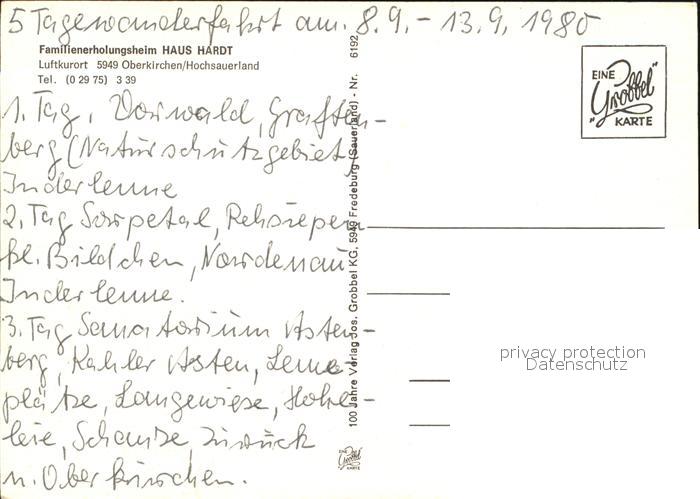 5 Tagewanderfahrt am. 8.9.- 13.9. 1980
Familienerholungsheim HAUS HARDT
Luftkurort 5949 Oberkirchen/Hochsauerland
Tel. (0 29 75) 3 39
1. Tag, Vorwald, Graften-
berg (Naturschutzgebiet
Inderlenne
2. Tag Sorpetal, Rehsiepen
kl. Bildchen, Nordenau
Inderlenne.
3. Tag Sanatorium Asten-
berg, Kahler Asten, Lenne-
plätze, Langewiese, Hohe-
leie, Schanze, zurück
n. Oberkirchen.
100 Jahre Verlag Jos. Grobbel KG, 5949 Fredeburg (Sauerland) - Nr. 6192
EINE
"Grobbel"
KARTE
EINE
Grobbel
KARTE
privacy protection
Datenschutz